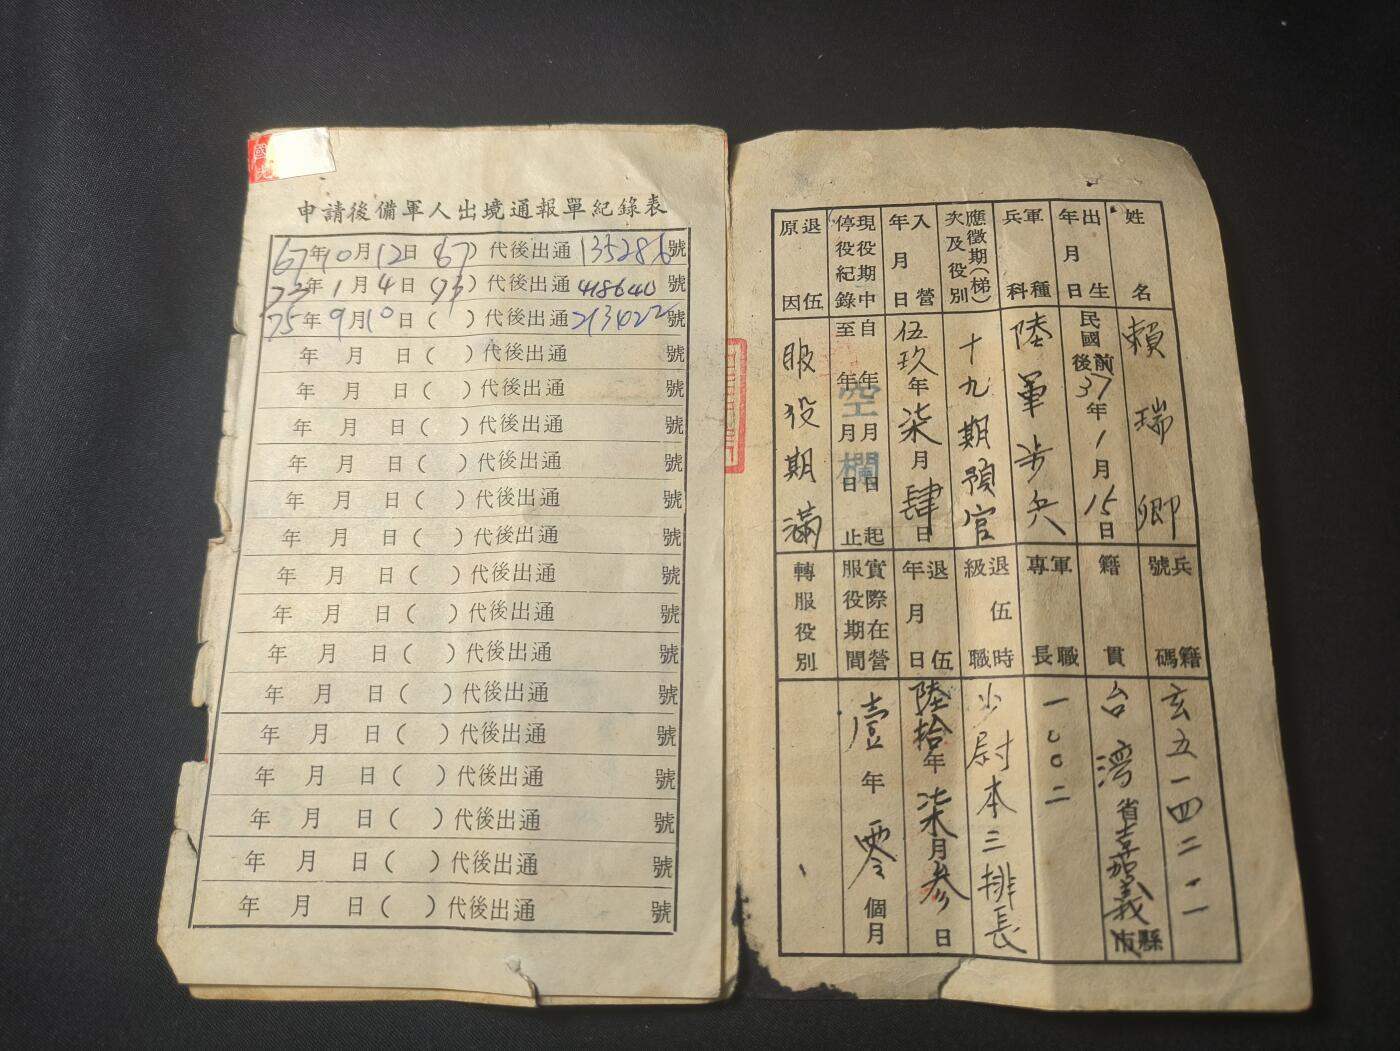 國
申請後備軍人出境通報單紀錄表
67年10月12日(67)代後出通135286號
年1月4日(73)代後出通418640號
75年9月10日( )代後出通213022號
年 月 日( )代後出通 號
年 月 日( )代後出通 號
年 月 日( )代後出通 號
年 月 日( )代後出通 號
年 月 日( )代後出通 號
年 月 日( )代後出通 號
年 月 日( )代後出通 號
年 月 日( )代後出通 號
年 月 日( )代後出通 號
年 月 日( )代後出通 號
年 月 日( )代後出通 號
年 月 日( )代後出通 號
年 月 日( )代後出通 號
年 月 日( )代後出通 號
年 月 日( )代後出通 號
姓名
賴瑞卿
兵籍號碼
玄五一四二二一
出生年月日
民國前後37年1月15日
籍貫
台灣省嘉義縣市
軍種兵科
陸軍步兵
軍職專長
一00二
應徵期(梯)次及役別
十九期預官
退伍時級職
少尉本三排長
入營年月日
伍玖年柒月肆日
退伍年月日
陸拾年柒月參日
現役期中停役紀錄
自 年 月 日起
至 年 月 日止
空欄
實際在營服役期間
壹年零個月
退伍原因
服役期滿
轉服役別